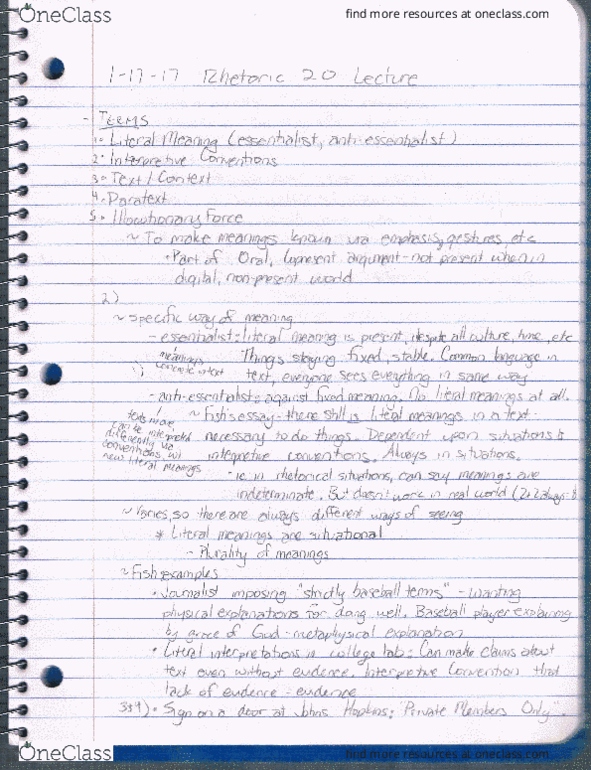 OneClass
find more resources at oneclass.com
1-17-17 Rhetoric 20 Lecture
- TERMS
1• Literal Meaning (essentialist, anti-essentialist)
2• Interpretive Conventions
3• Text / Context
4. Paratext
5• Illocutionary Force
~ To make meanings known via emphasis, gestures, etc
• Part of Oral, present argument - not present when in
digital, non-present world
2)
~ specific way of meaning
- essentialist: literal meaning is present, despite all culture, time, etc
meanings
concrete in text
1)
Things staying fixed, stable. Common language in
text, everyone sees everything in same way
- anti-essentialist: against fixed meaning. No literal meanings at all.
texts move,
can be interpreted
differently via
conventions, w/
new literal meanings
~ Fish's essay - there still is literal meanings in a text -
necessary to do things. Dependent upon situations &
interpretive conventions. Always in situations.
- ie in rhetorical situations, can say meanings are
indeterminate. But doesn't work in real world
~ Varies, so there are always different ways of seeing
* Literal meanings are situational
- Plurality of meanings
~ Fish examples
• Journalist imposing "strictly baseball terms" - wanting
physical explanations for doing well. Baseball player explaining
by grace of God - metaphysical explanation
• Literal interpretations in college lab: Can make claims about
text even without evidence. Interpretive Convention that
lack of evidence = evidence
3&4) • Sign on a door at Johns Hopkins: "Private Members Only".
OneClass
find more resources at oneclass.com